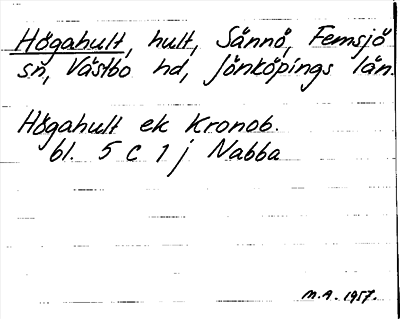 Högahult, hult, Sännö, Femsjö
sn, Västbo hd, Jönköpings län.
Högahult ek Kronob.
bl. 5 C 1 j Nabba
M.A. 1957.